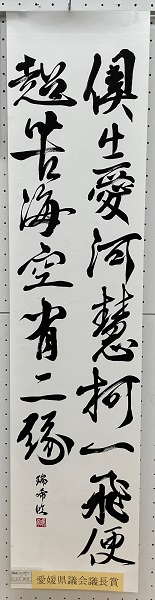 俱出愛河慧柯一飛便
超苦海空有二緣
瑞希臨
愛媛県議会議長賞